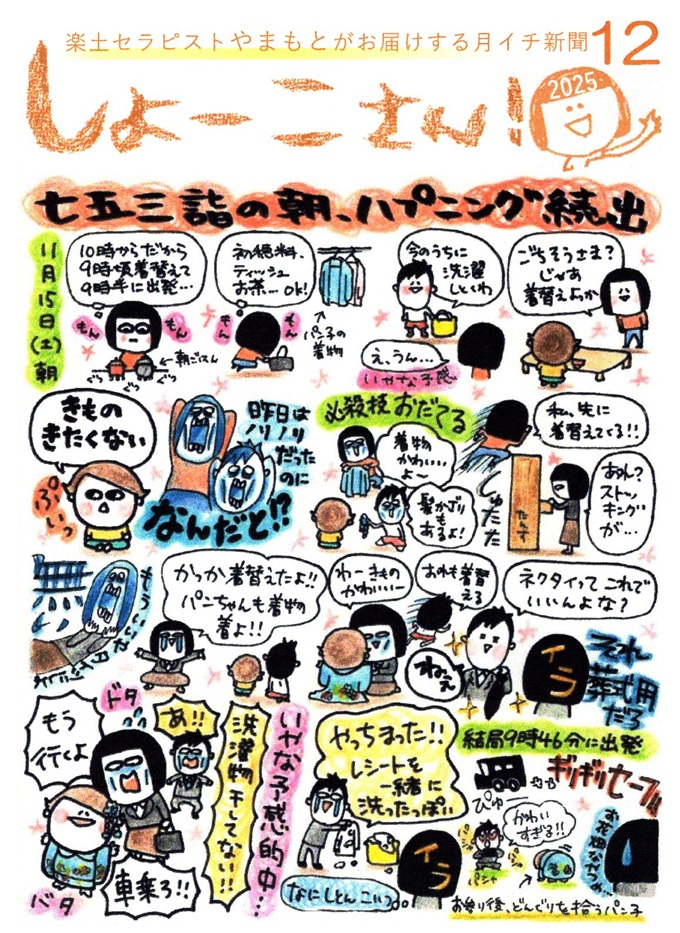 楽土セラピストやまもとがお届けする月イチ新聞
12
しょーこさん!
2025
七五三詣の朝、ハプニング続出
11月15日(土)朝
10時からだから
9時頃着替えて
9時半に出発…
もん
もん
←朝ごはん
ぐら
ぐら
初穂料、
ティッシュ
お茶…ok!
もん
もん
↑
パン子の
着物
今のうちに
洗濯
しといわ
え、うん…
いやな予感
ごちそうさま?
じゃあ
着替えよっか
きもの
きたくない
ぷいっ
昨日は
ノリノリ
だった
のに
なんだと!?
必殺技おだてる
着物
かわいい
よ〜
髪かざり
も
あるよ!
私、先に
着替えてくる!!
しゅたた
たんす
あれ?
ストッ
キング
が…
もういいわ
かっか着替えたよ!!
パンちゃんも着物
着よ!!
わーきもの
かわいいー
おれも着替
える
ねえ
ネクタイってこれで
いいんよな?
イラ
それ
葬式用
だろ
もう
行くよ
ドタ
バタ
あ!!
車乗ろ!!
洗濯物干してない!!
いやな予感的中…
やっちまった!!
レシートを
一緒に
洗ったっぽい
なにしとんこいつ。。
イラ
結局9時46分に出発
ギリギリセーフ!!
ぴゅー
かわい
すぎる!!
パシャ
パシャ
パシャ
お参り後、どんぐりを拾うパン子